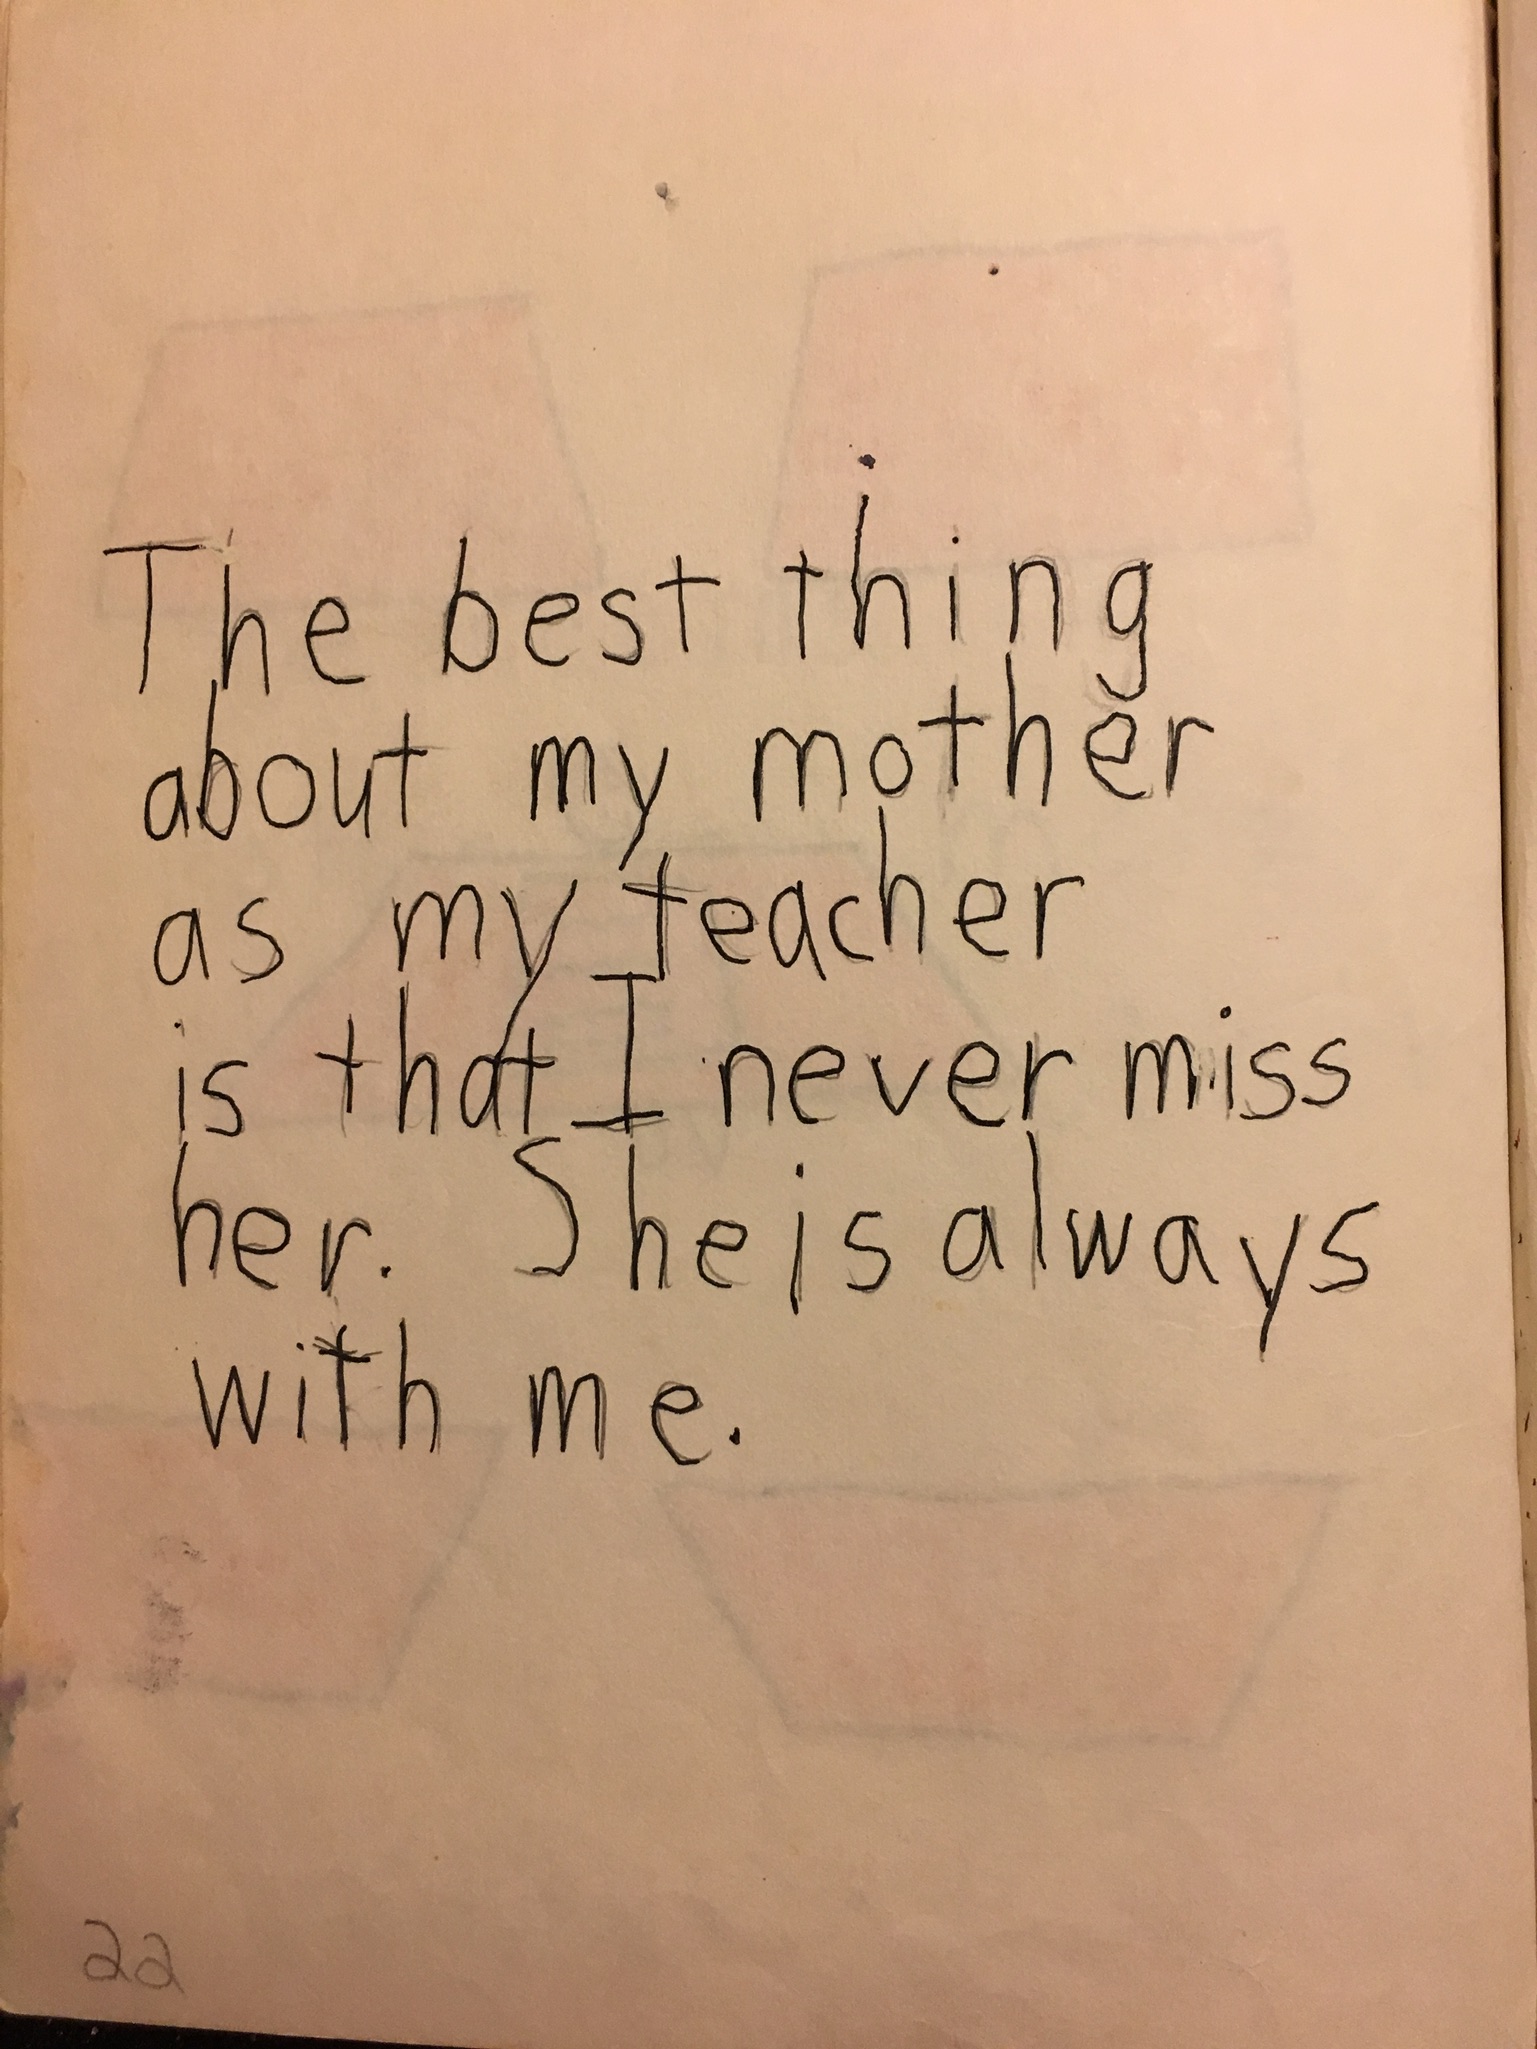 The best thing
about my mother
as my teacher
is that I never miss
her. She is always
with me.
22